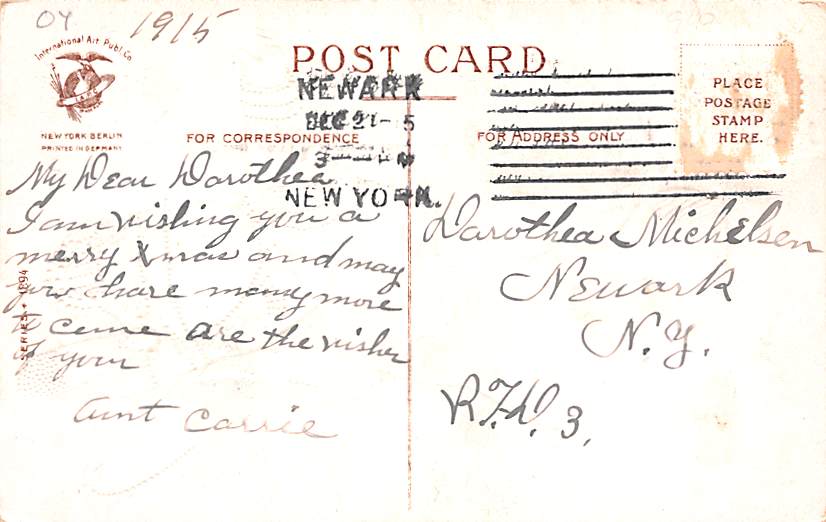 04 1915
International Art Publ. Co.
NEW YORK BERLIN
PRINTED IN GERMANY
POST CARD
NEWARK
DEC 21
3-
NEW YORK.
FOR CORRESPONDENCE
FOR ADDRESS ONLY
PLACE
POSTAGE
STAMP
HERE.
SERIES 1894
My Dear Dorothea
I am wishing you a
merry Xmas and may
you have many more
to come are the wishes
of your
Aunt Carrie
Dorothea Michelsen
Newark
N.Y.
R.F.D. 3.